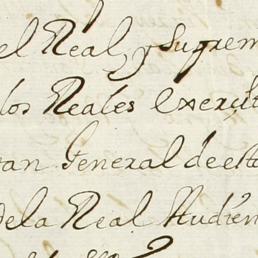 el Real, y Suprem
los Reales Exercit
tan General de est
dela Real Audien